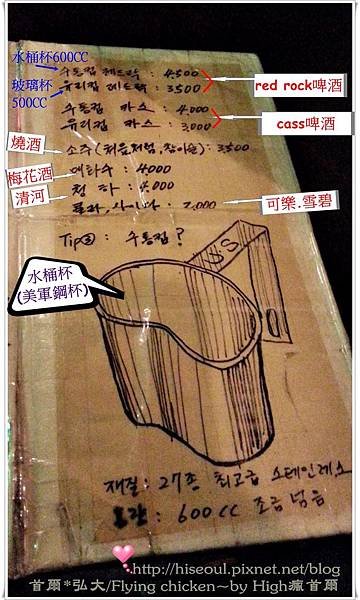 水桶杯600CC
수통컵 레드락 : 4,500
玻璃杯
500CC
유리컵 레드락 : 3500
red rock啤酒
수통컵 카스 : 4,000
유리컵 카스 : 3,000
cass啤酒
燒酒
소주(처음처럼, 참이슬): 3500
梅花酒
매화수 : 4000
清河
청하 : 4,000
콜라, 사이다 : 2,000
可樂.雪碧
Tip③ : 수통컵?
水桶杯
(美軍鋼杯)
US
재질: 27종 최고급 스테인레스
용량: 600CC 조금 넘음
http://hiseoul.pixnet.net/blog
首爾*弘大/Flying chicken~by High瘋首爾